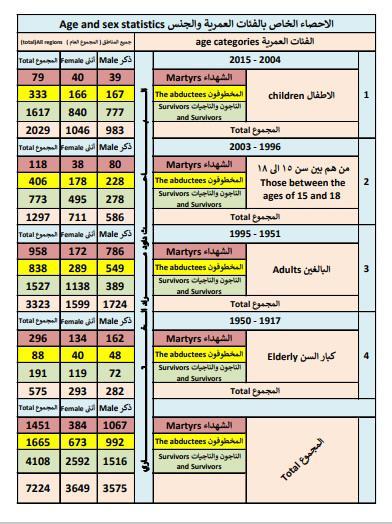 الاحصاء الخاص بالفئات العمرية والجنس Age and sex statistics
جميع المناطق ( المجموع العام ) All regions(total) الفئات العمرية age categories
المجموع Total أنثى Female ذكر Male 2015 - 2004
79 40 39 الشهداء Martyrs الاطفال children 1
333 166 167 المخطوفون The abductees
1617 840 777 الناجون والناجيات Survivors and Survivors
2029 1046 983 المجموع Total
المجموع Total أنثى Female ذكر Male 2003 - 1996
118 38 80 الشهداء Martyrs من هم بين سن ١٥ الى ١٨ 2
406 178 228 المخطوفون The abductees Those between the
773 495 278 الناجون والناجيات Survivors and Survivors ages of 15 and 18
1297 711 586 المجموع Total
المجموع Total أنثى Female ذكر Male 1995 - 1951
958 172 786 الشهداء Martyrs البالغين Adults 3
838 289 549 المخطوفون The abductees
1527 1138 389 الناجون والناجيات Survivors and Survivors
3323 1599 1724 المجموع Total
المجموع Total أنثى Female ذكر Male 1950 - 1917
296 134 162 الشهداء Martyrs كبار السن Elderly 4
88 40 48 المخطوفون The abductees
191 119 72 الناجون والناجيات Survivors and Survivors
575 293 282 المجموع Total
المجموع Total أنثى Female ذكر Male
1451 384 1067 الشهداء Martyrs المجموع Total
1665 673 992 المخطوفون The abductees
4108 2592 1516 الناجون والناجيات Survivors and Survivors
7224 3649 3575